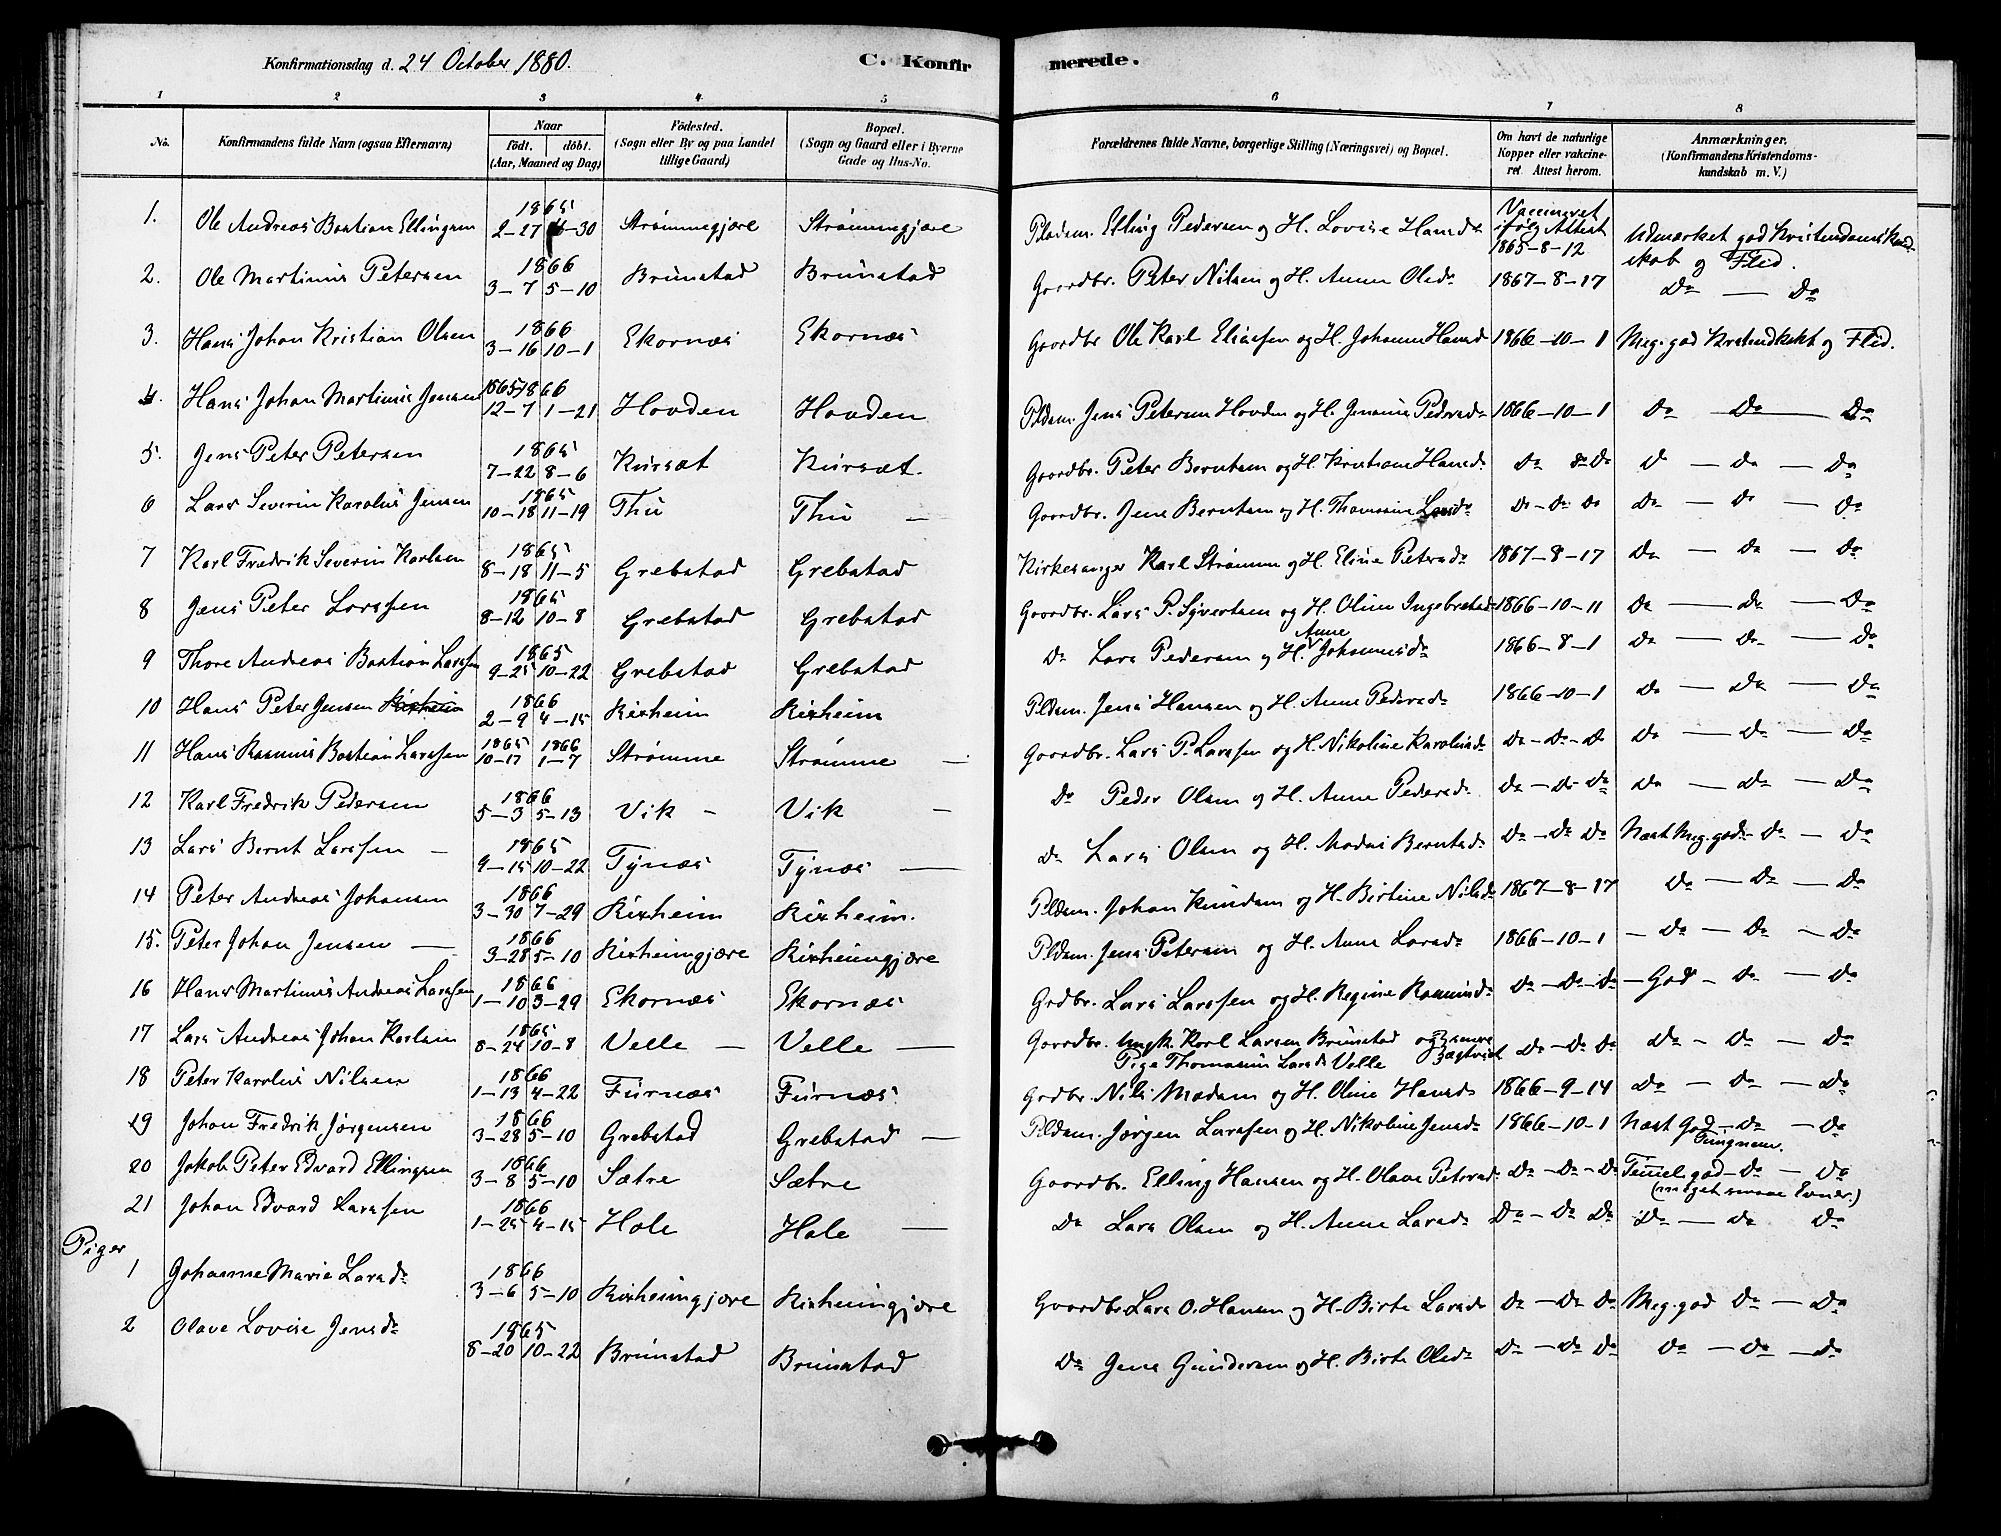 Konfirmationsdag d. 24 October 1880. C. Konfirmerede.
1 2 3 4 5 6 7 8
No. Konfirmandens fulde Navn (ogsaa Efternavn) Naar født. døbt. (Aar, Maaned og Dag) Födested. (Sogn eller By og paa Landet tillige Gaard) Bopæl. (Sogn og Gaard eller i Byerne Gade og Hus-No. Forældrenes fulde Navne, borgerlige Stilling (Næringsvei) og Bopæl. Om havt de naturlige Kopper eller vakcineret. Attest herom. Anmærkninger. (Konfirmandens Kristendomskundskab m. V.)
1. Ole Andreas Bastian Ellingsen 1865 2-27 4-30 Strømmegjære Strømmegjære Pldsm. Elling Pedersen og H. Lovise Hansdr Vaccineret ifølg Attest 1865-8-12 Udmærket god Kristendomskundskab og Flid.
2. Ole Martinus Petersen 1866 3-7 5-10 Brunstad Brunstad Gaardbr. Peter Nilsen og H. Anne Olsdr 1867-8-17 Do — Do
3. Hans Johan Kristian Olsen 1866 3-16 10-1 Ekornæs Ekornæs Gaardbr Ole Karl Eliassen og H. Johanne Hansd 1866-10-1 Meg. god Kristendskskt og Flid.
4. Hans Johan Martinus Jensen 1865 1866 12-7 1-21 Hovden Hovden Pldsm. Jens Petersen Hovden og H. Jensine Pedersdr 1866-10-1 Do — Do — Do
5. Jens Peter Petersen 1865 7-22 8-6 Kursæt Kursæt. Gaardbr. Peter Berntsen og H. Kristiane Hansdr Do Do Do — Do — Do
6 Lars Severin Karolius Jensen 1865 10-18 11-19 Thu Thu — Gaardbr. Jens Berntsen og H. Thomasine Larsdr Do - Do Do Do — Do — Do
7 Karl Fredrik Severin Karlsen 1865 8-18 11-5 Grebstad Grebstad Kirkesanger Karl Strømme og H. Eline Petersdr 1867-8-17 Do — Do — Do
8 Jens Peter Larssen 1865 8-12 10-8 Grebstad Grebstad Gaardbr. Lars P. Syvertsen og H. Oline Ingebretsdr 1866-10-11 Do — Do — Do
9 Thore Andreas Bastian Larssen 1865 9-25 10-22 Grebstad Grebstad Do Lars Pedersen og H. Anne Johannesdr 1866-8-1 Do — Do — Do
10 Hans Peter Jensen Kirheim 1866 2-9 4-15 Kirheim Kirheim Pldsm. Jens Hansen og H. Anne Pedersdr 1866-10-1 Do — Do — Do
11 Hans Rasmus Bastian Larssen 1865 1866 10-17 1-7 Strømme Strømme — Gaardbr. Lars P. Larssen og H. Nikoline Karolusdr Do - Do - Do Do — Do — Do
12 Karl Fredrik Pedersen 1866 5-3 5-13 Vik - Vik - Do Peder Olsen og H. Anne Pedersdr Do - Do Do Do — Do — Do
13 Lars Bernt Larssen — 1865 9-15 10-22 Tynæs Tynæs — Do Lars Olsen og H. Madsi Berntsdr Do - Do Do Næst Meg. god - Do — Do
14 Peter Andreas Johansen 1866 3-30 7-29 Kirheim Kirheim. Pldsm. Johan Knudsen og H. Birtine Nilsdr 1867-8-17 Do — Do — Do
15. Peter Johan Jensen — 1866 3-28 5-10 Kirheimgjære Kirheimgjære Pldsm. Jens Petersen og H. Anne Larsdr 1866-10-1 - Do — Do — Do
16 Hans Martinus Andreas Larssen 1866 1-10 3-29 Ekornæs Ekornæs Grdbr. Lars Larssen og H. Regine Rasmusdr Do - Do - Do - God - Do — Do
17 Lars Andreas Johan Karlsen 1865 8-24 10-8 Velle — Velle — Gaardbr. Ungk. Karl Larsen Brunstad og Pige Thomasine Larsdr Velle Do - Do Do Do - Do — Do
18 Peter Karolius Nilsen 1866 1-13 4-22 Furnæs Furnæs Grdbr. Nils Madsen og H. Oline Hansdr 1866-9-14 Do — Do — Do
19 Johan Fredrik Jørgensen 1866 3-28 5-10 Grebstad Grebstad — Pldsm. Jørgen Larssen og H. Nikoline Jensdr 1866-10-1 Næst God - Do — Do
20 Jakob Peter Edvard Ellingsen 1866 3-8 5-10 Sætre Sætre Gaardbr. Elling Hansen og H. Olave Petersdr Do - Do - Do Temel. god - Do — Do (meget smaae Evner.)
21 Johan Edvard Larssen 1866 1-25 4-15 Hole Hole — Do Lars Olsen og H. Anne Larsdr Do - Do Do Do — Do Do
Piger
1 Johanne Marie Larsdr 1866 3-6 5-10 Kirheimgjære Kirheimgjære Gaardbr. Lars O. Hansen og H. Birte Larsdr Do - Do Do Meg. god Do — Do
2 Olave Lovise Jensdr 1865 8-20 10-22 Brunstad Brunstad Do Jens Gundersen og H. Birte Olsdr Do - Do Do Do — Do — Do